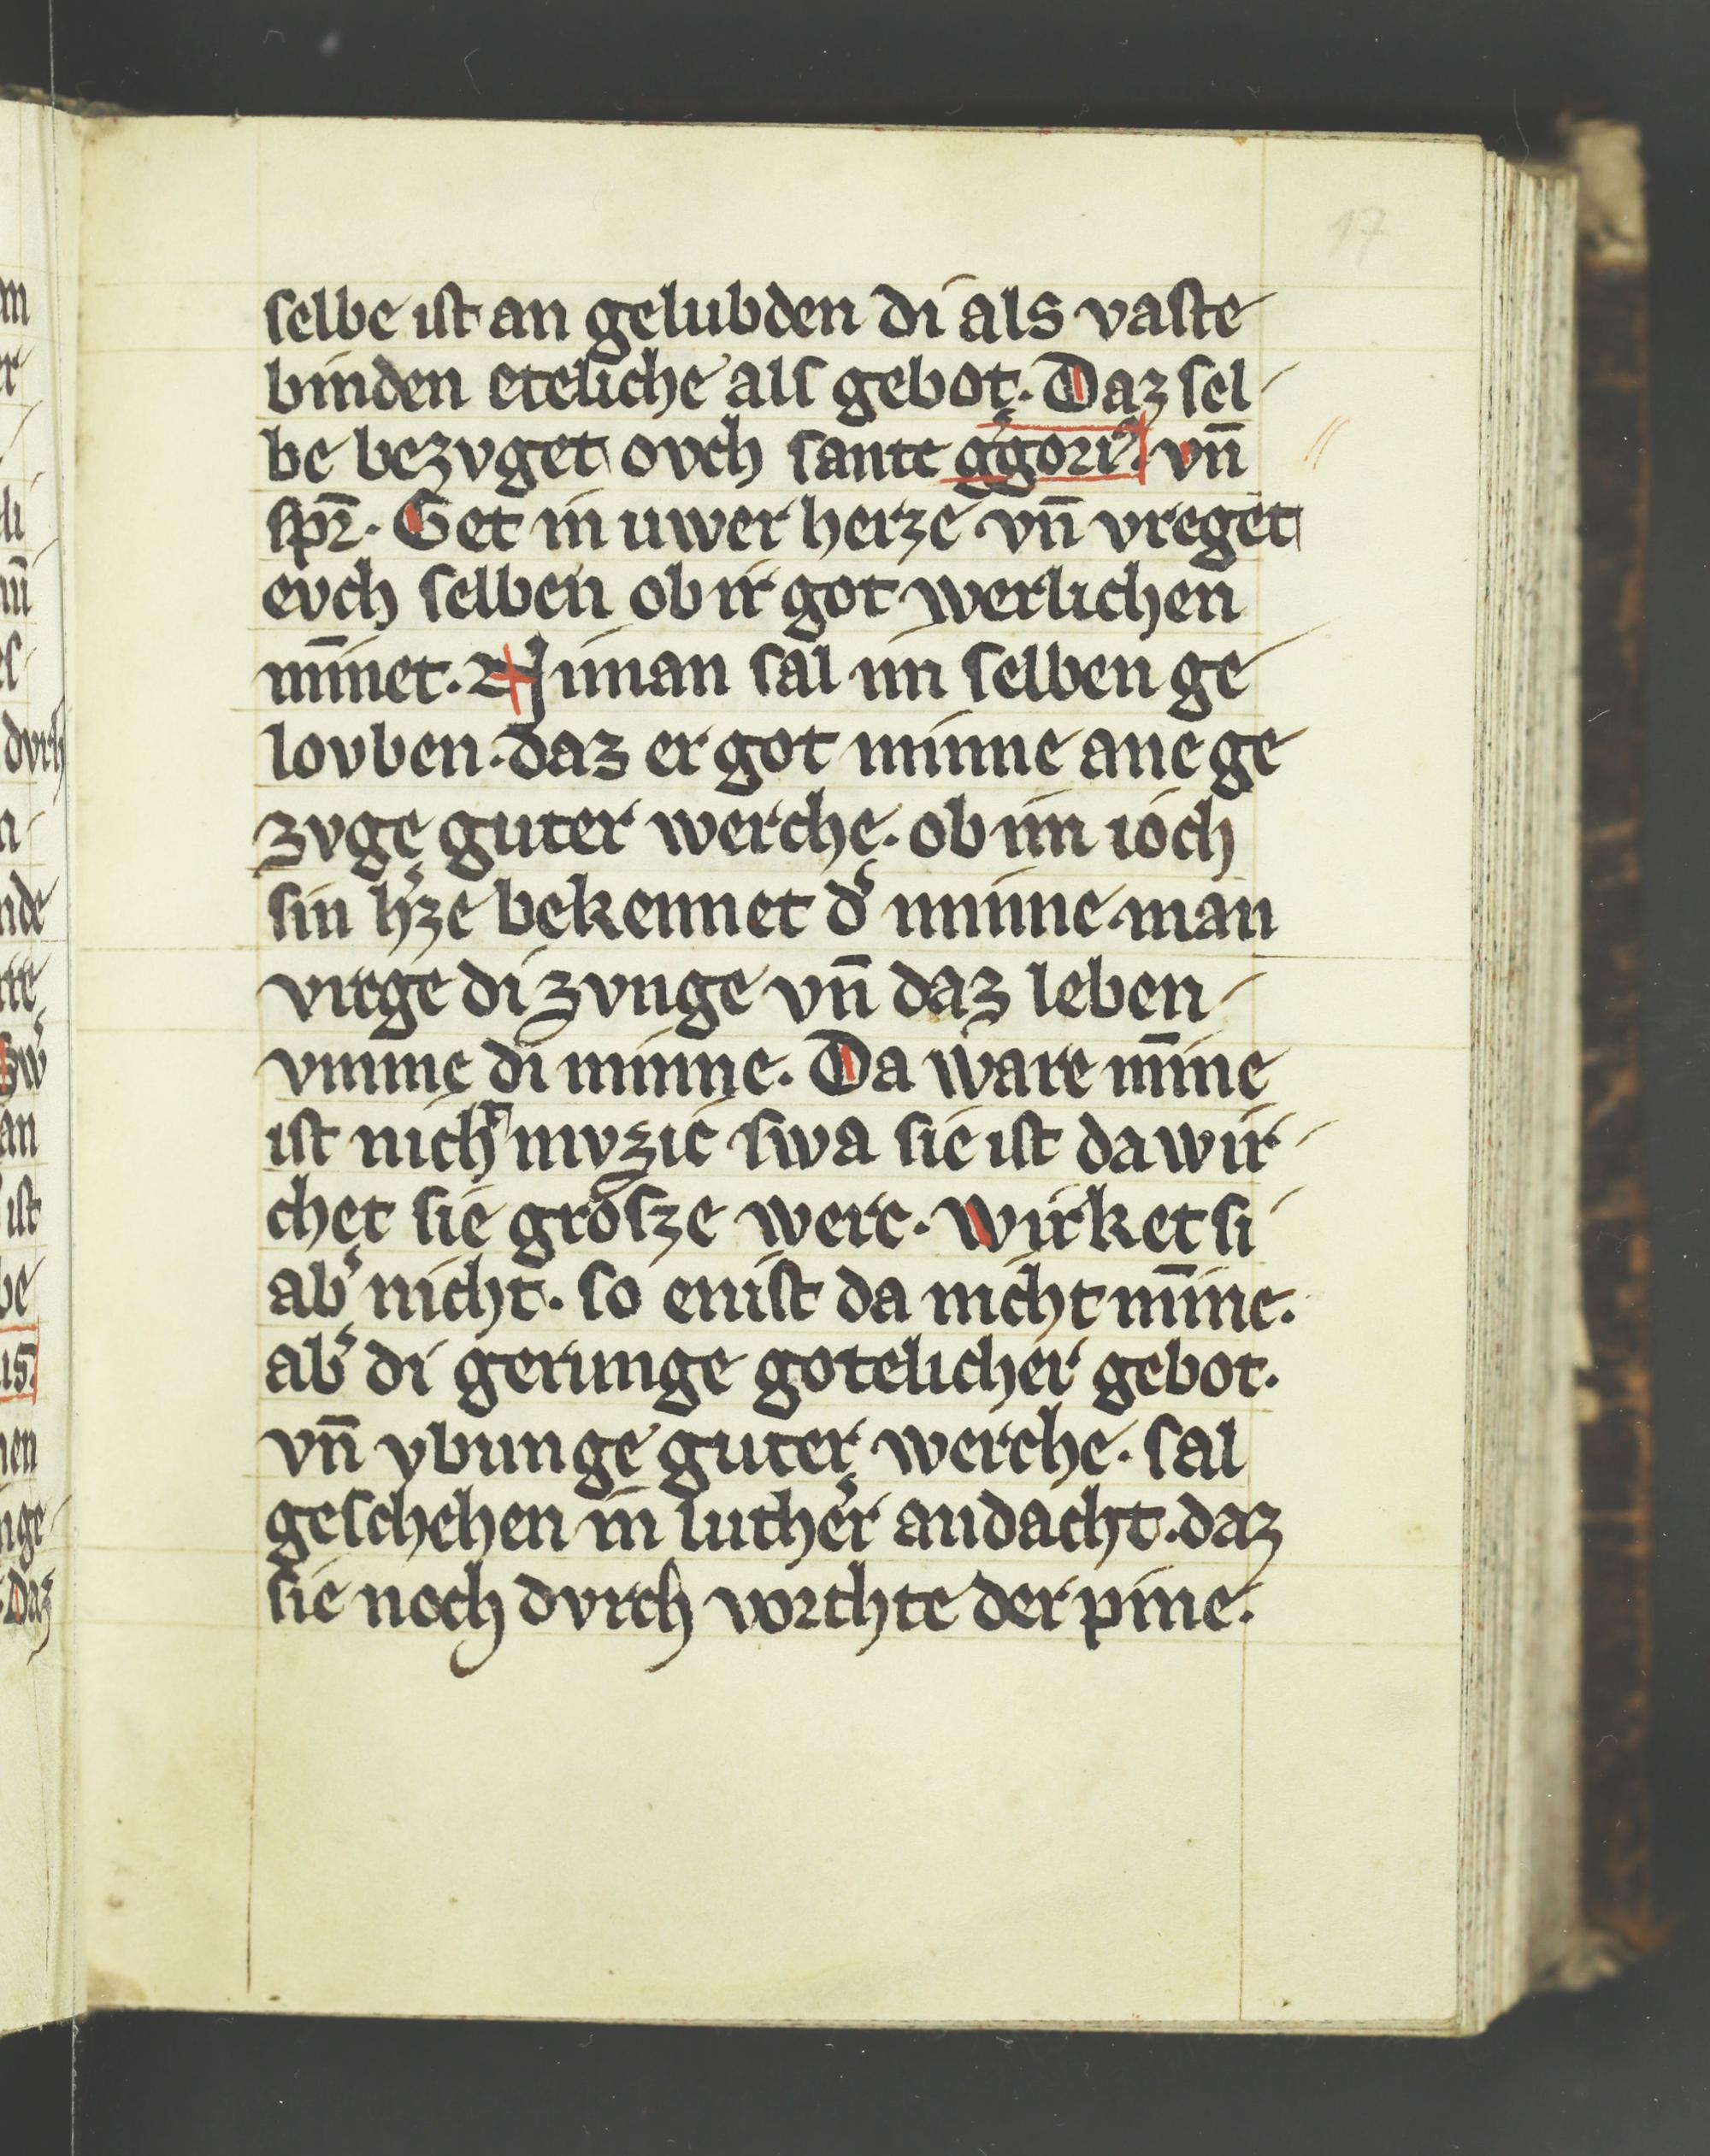 17
selbe ist an gelubden di als vaste
binden eteliche als gebot. Daz sel
be bezvget ovch sante g͛goriꝰ. vn̄
spꝛ̄. Get in uwer herze vn̄ vreget
evch selben ob ir got werlichen
mīnet. Niman sal im selben ge
lovben. daz er got minne ane ge
zvge guter werche. ob im ioch
sin h͛ze bekennet d͛ minne. man
vrege di zvnge vn̄ daz leben
vmme di minne. Da ware mīne
ist nicht mvzic swa sie ist da wir
chet sie grosze werc. Wirket si
ab͛ nicht. so enist da nicht mīne.
ab͛ di gerunge gotelicher gebot.
vn̄ ybunge guter werche. sal
geschehen in luther andacht. daz
sie noch dvrch vorchte der pine.